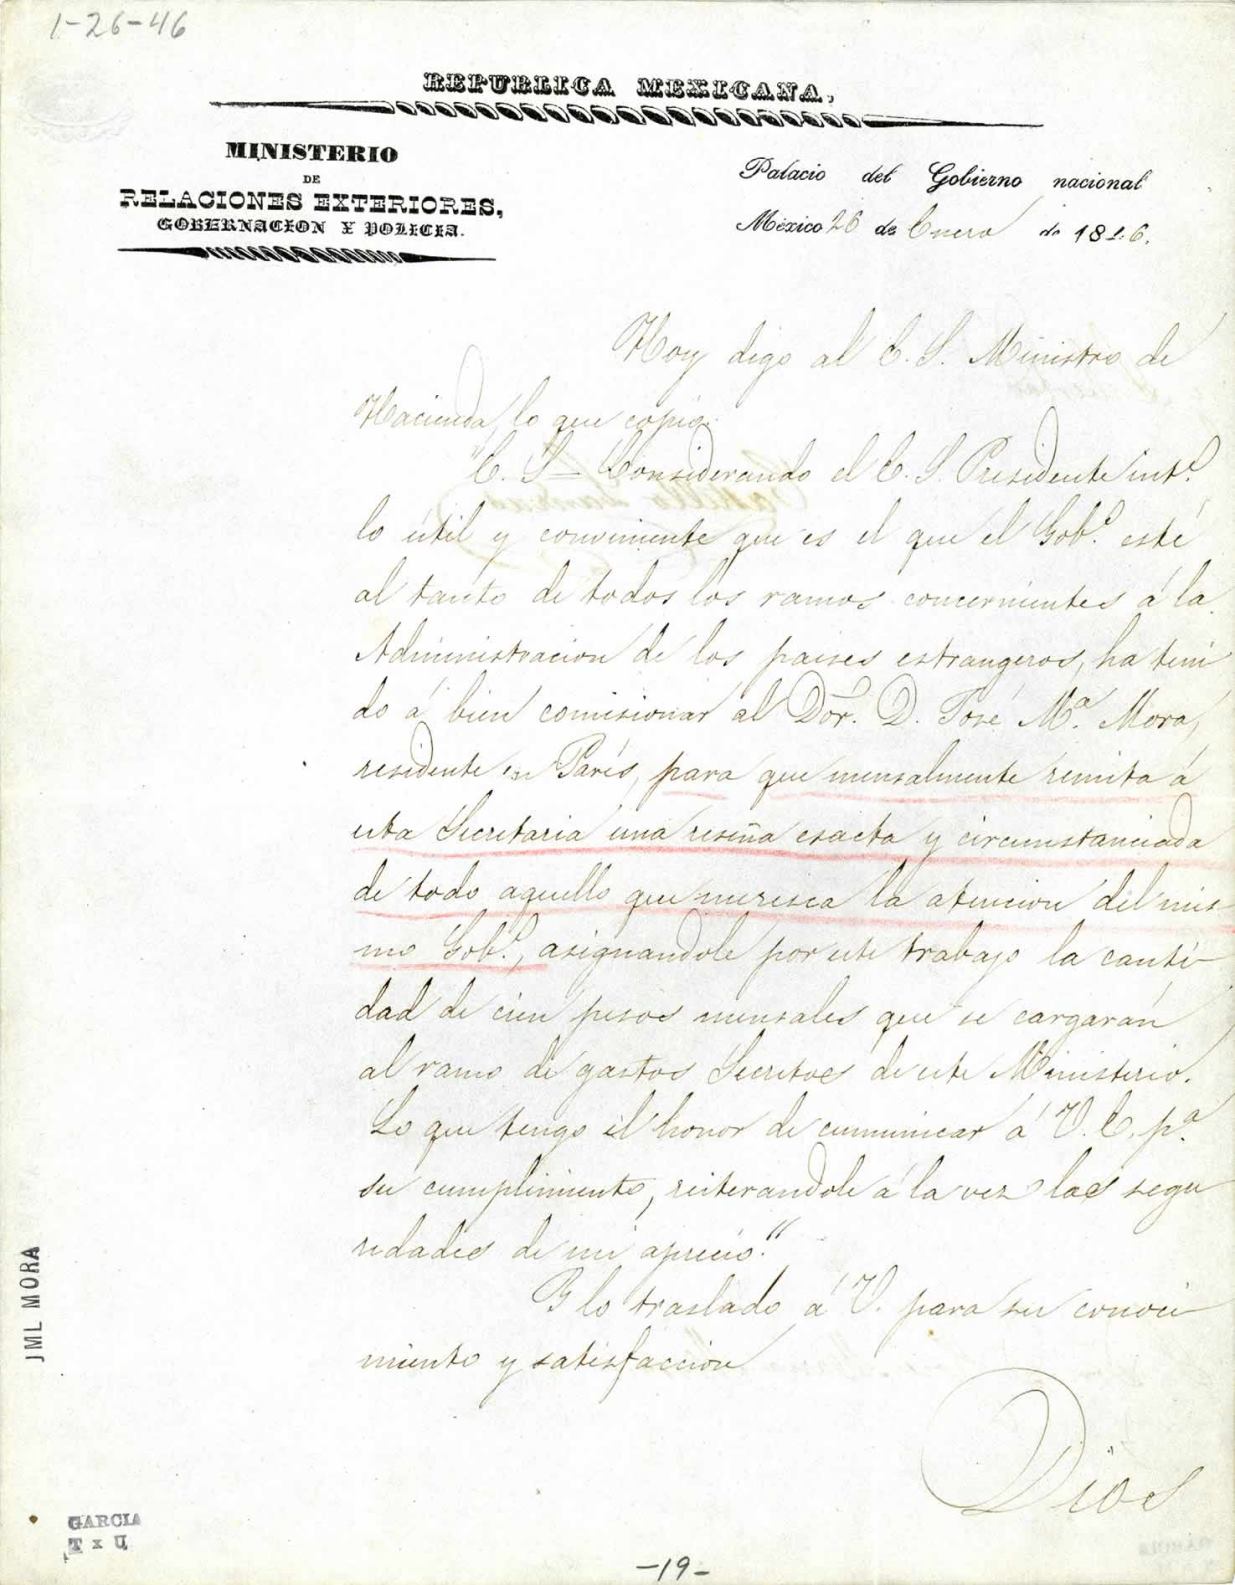 1-26-46
REPUBLICA MEXICANA.
MINISTERIO
DE
RELACIONES EXTERIORES,
GOBERNACION Y POLICIA.
Palacio del Gobierno nacional
México 26 de Enero de 1846.
Hoy digo al E. S. Ministro de
Hacienda, lo que copio.
"E. S.= Considerando el E. S. Presidente int.º
lo útil y conviniente que es el que el Gob.º esté
al tanto de todos los ramos concernientes á la
Administracion de los paises estrangeros, ha teni
do á bien comisionar al Dor. D. José M.ª Mora,
residente en París, para que mensalmente remita á
esta Secretaria una reseña esacta y circunstanciada
de todo aquello que meresca la atencion del mis-
mo Gob.º, asignandole por este trabajo la canti-
dad de cien pesos mensales que se cargarán
al ramo de gastos Secretos de este Ministerio.
Lo que tengo el honor de cumunicar á V. E. p.ª
su cumplimiento, reiterandole á la vez las segu
ridades de mi aprecio."
Y lo traslado á V. para su conoci-
miento y satisfaccion
Dios
JML MORA
GARCIA
T x U
-19-